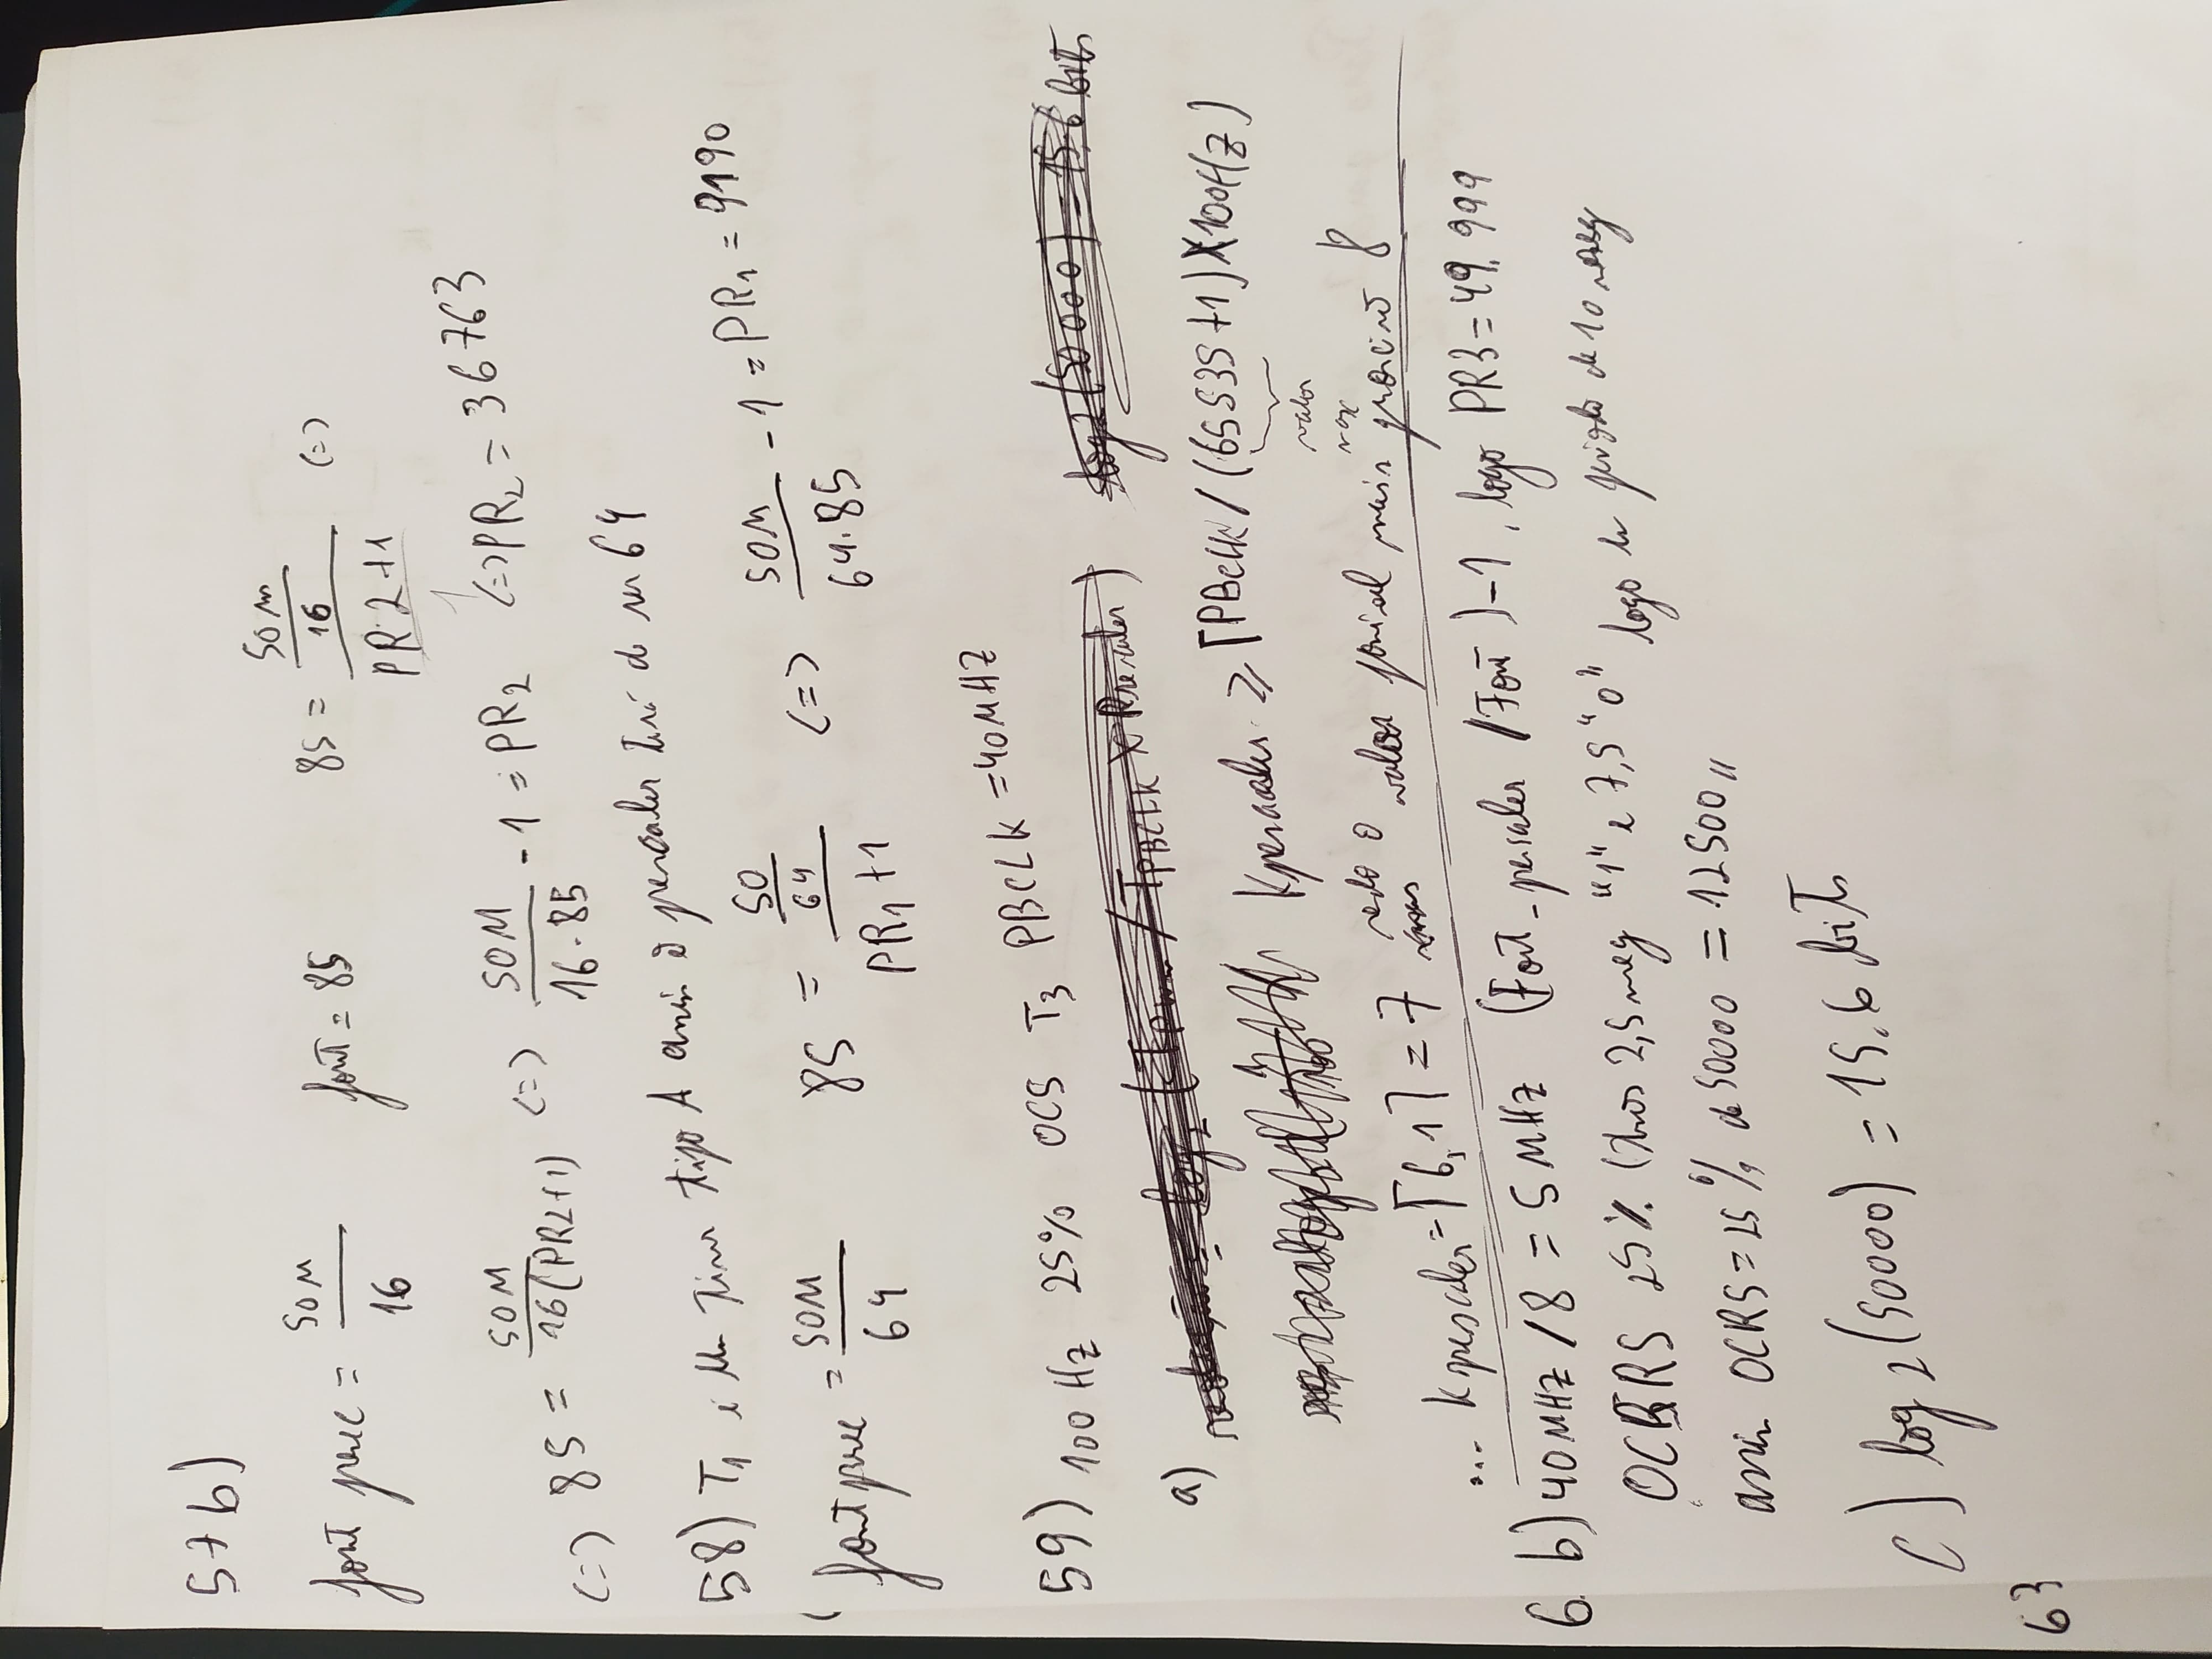 57 b)
fout presc = 50M / 16   fout = 85   85 = (50M / 16) / (PR2+1) (=)
(=) 85 = 50M / 16(PR2+1) (=) 50M / 16·85 - 1 = PR2 (=) PR2 = 36763
58) T1 é um timer tipo A assim o prescaler terá de ser 64
fout presc = 50M / 64   85 = (50 / 64) / (PR1+1) (=) 50M / 64·85 - 1 = PR1 = 9190
59) 100 Hz 25% OC5 T3 PBCLK = 40MHZ
log2(50000) = 15.6 bits
a) resolução = log2(Tpwm / TPBCLK X Prescaler)
Kprescaler ≥ ⌈PBCLK / (65535+1) X 100Hz)
valor
max
... Kprescaler = ⌈6,1⌉ = 7 sendo o valor possivel mais proximo 8
6. b) 40MHZ / 8 = 5MHZ (Fout_prescaler / Fout) - 1, logo PR3 = 49.999
OC5RS 25% 2,5 mseg "1" e 7,5 "0" logo periodo de 10 mseg
assim OCRS = 25% de 50000 = 12500,,
C) log2(50000) = 15.6 bits
63